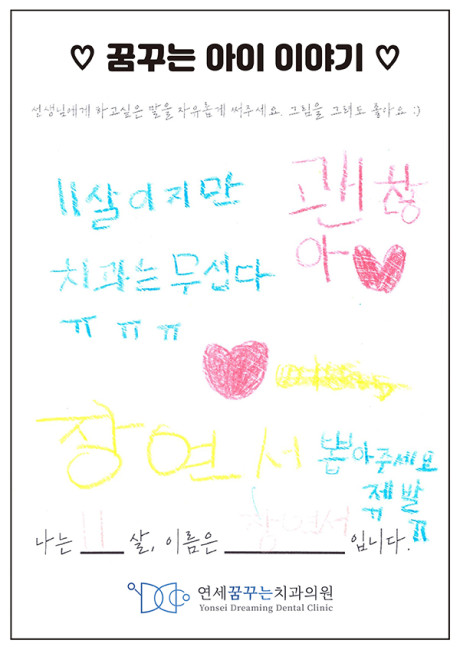 ♡ 꿈꾸는 아이 이야기 ♡
선생님에게 하고싶은 말을 자유롭게 써주세요. 그림을 그려도 좋아요 :)
11살이지만
괜찮
아
치과는 무섭다
ㅠ ㅠ ㅠ
장연서
뽑아주세요
제발
ㅠ ㅠ
나는 11 살, 이름은 장연서 입니다.
연세꿈꾸는치과의원
Yonsei Dreaming Dental Clinic